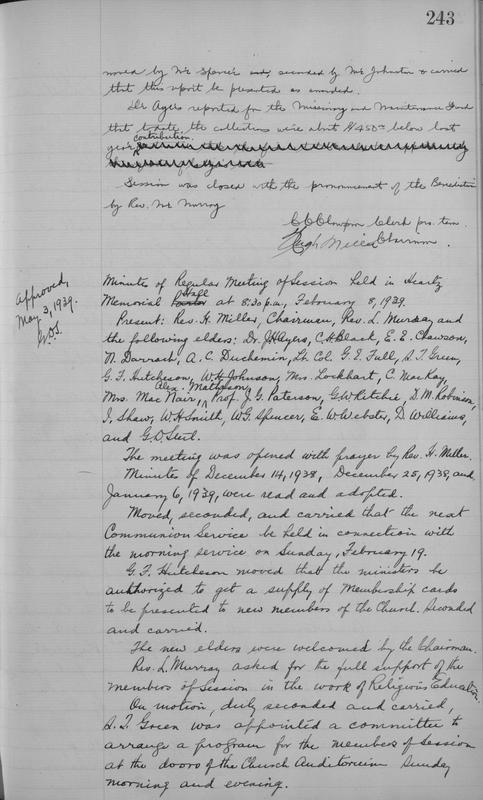 243
moved by Mr Spencer seconded by Mr Johnston & carried
that this report be presented as amended.
Dr Ayers reported for the Missionary and Maintenance Fund
that to date the collections were about $450.00 below last
year's contribution.
Session was closed with the pronouncement of the Benediction
by Rev. Mr Murray
E E Clawson Clerk pro. tem.
Hugh Miller Chairman.
Approved,
May 3, 1939.
G.D.S.
Minutes of Regular Meeting of Session held in Heartz
Memorial Hall at 8:30 p.m., February 8, 1939.
Present: Rev. H. Miller, Chairman, Rev. L. Murray, and
the following elders: Dr. J H Ayers, C. H. Black, E. E. Clawson,
N. Darrach, A. C. Duchemin, Lt. Col. G. E. Full, S. T. Green,
G. F. Hutcheson, W. H. Johnson, Mrs. Lockhart, C. MacKay,
Mrs. MacNair, Alex. Matheson, Prof. J. G. Paterson, G W Ritchie, D. M. Robinson,
I. Shaw, W. H Smith, W G. Spencer, E. W. Webster, D. Williams,
and G. D. Steel.
The meeting was opened with prayer by Rev. H. Miller.
Minutes of December 14, 1938, December 25, 1938, and
January 6, 1939, were read and adopted.
Moved, seconded, and carried that the next
Communion Service be held in connection with
the morning service on Sunday, February 19.
G. F. Hutcheson moved that the ministers be
authorized to get a supply of Membership cards
to be presented to new members of the Church. Seconded
and carried.
The new elders were welcomed by the Chairman.
Rev. L. Murray asked for the full support of the
members of Session in the work of Religious Education.
On motion, duly seconded and carried,
S. T. Green was appointed a committee to
arrange a program for the members of Session
at the doors of the Church Auditorium Sunday
morning and evening.